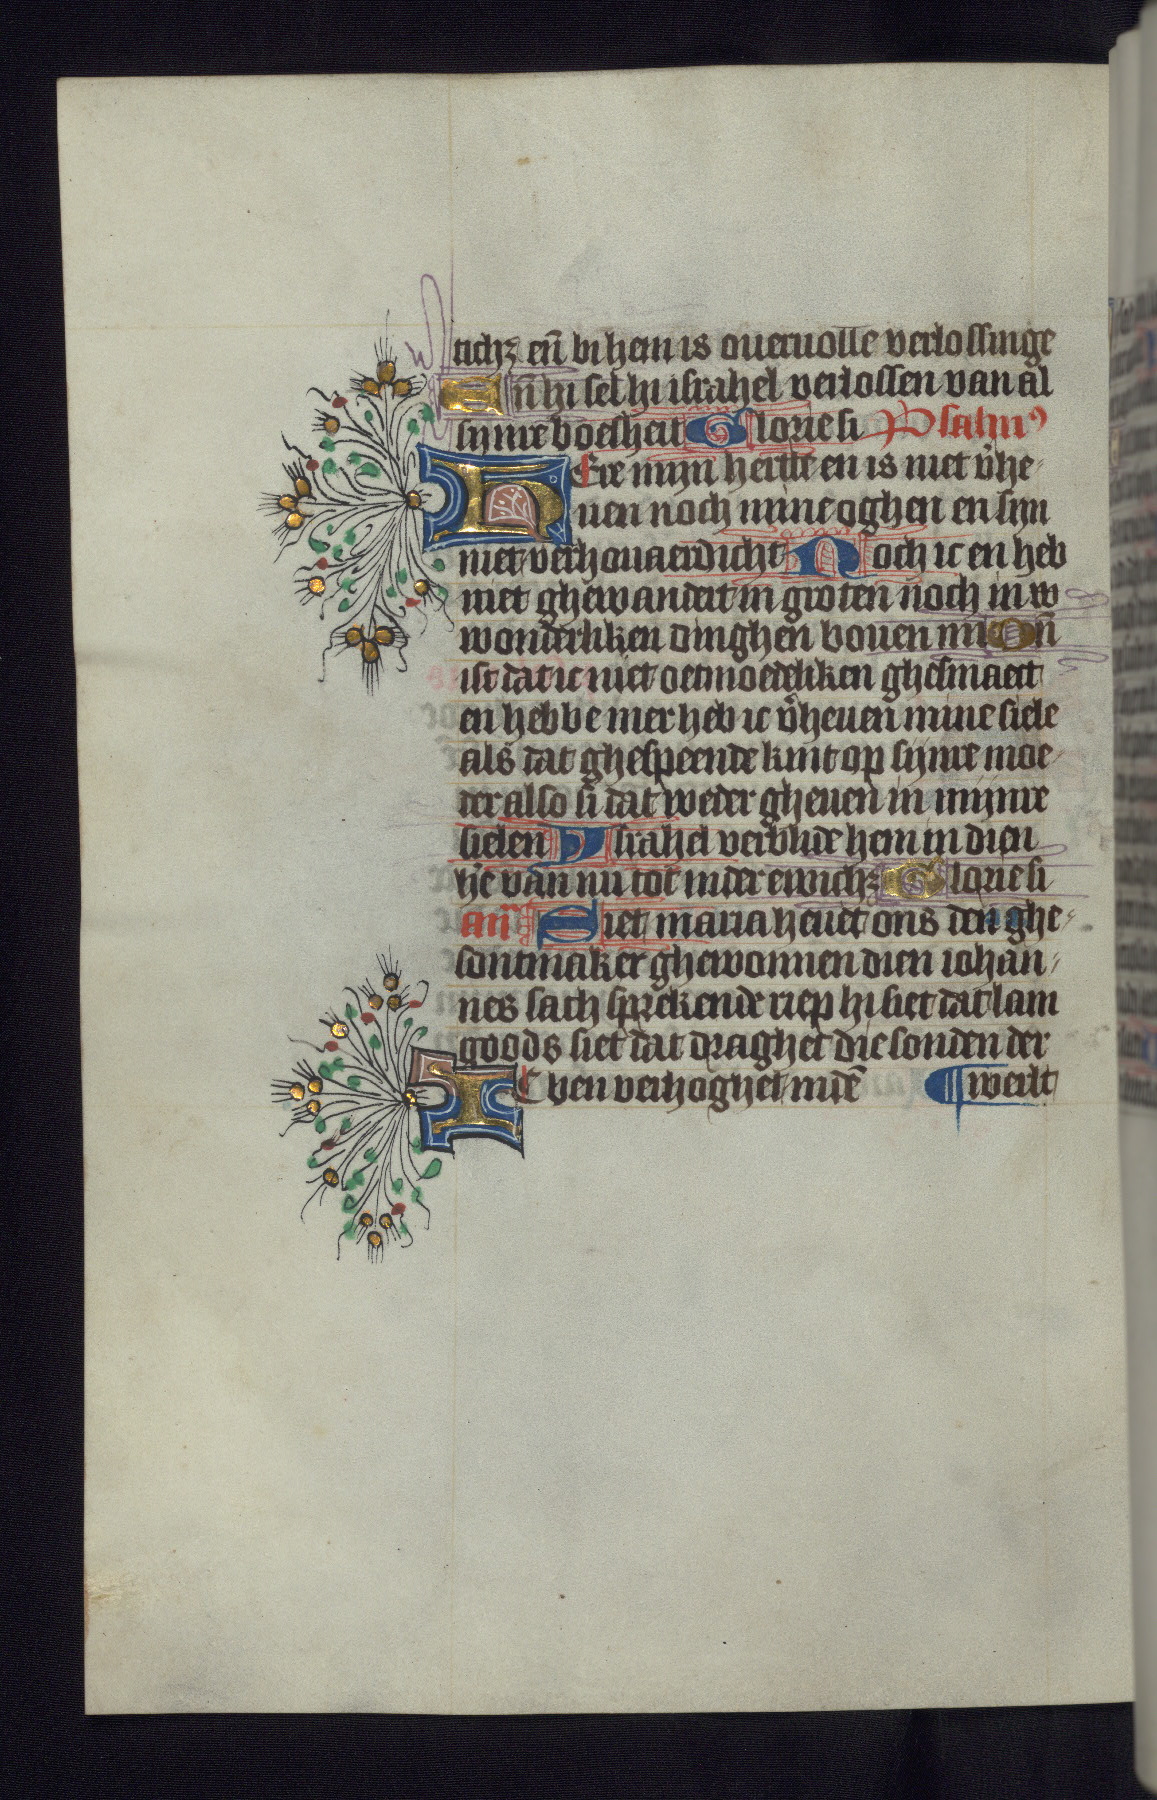 ticheȝ en̄ bi hem is ouervolle verlossinge
En̄ hi sel hi israhel verlossen van al
synre boesheit Glorie si Psalmꝰ
HEre mijn hertte en is niet v̄he
uen noch mine oghen en sijn
niet verhouaerdicht Noch ic en heb
niet ghewandert in groten noch in w
wonderliken dinghen bouen mi On̄
ist dat ic niet oetmoedeliken ghesmaect
en hebbe mer heb ic v̄heuen mine siele
als dat ghespeende kint op synre moe
der also si dat weder gheuen in mijnre
sielen Ysrahel verblide hem in dien
hē van nu tot in der ewicheȝ Glorie si
an̄ Siet maria heuet ons den ghe
sontmaker ghewonnen dien iohan
nes sach sprekende riep hi siet dat lam
goods siet dat draghet die sonden der
TEuen verhoghet mitē ¶ werlt